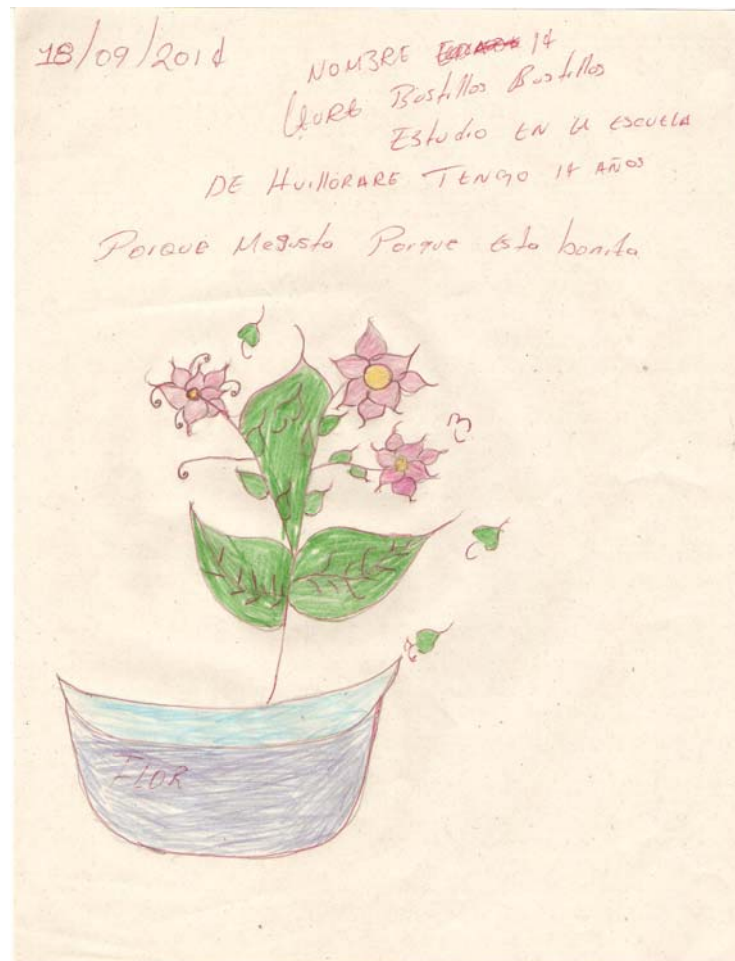 18/09/2014
NOMBRE 14
Bustillos Bustillos
Estudio EN LA ESCUELA
DE HUILLORARE TENGO 14 AÑOS
PORQUE Megusta Porque Esta bonita
FLOR